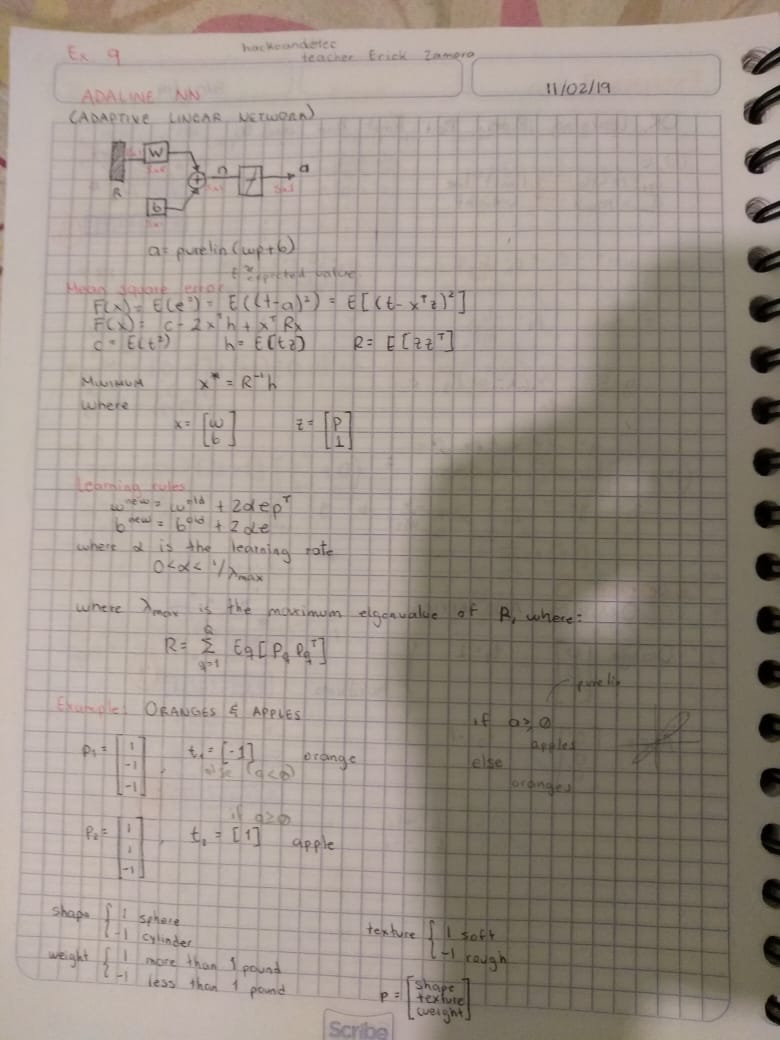 Ex. 9
hackoandelec
teacher Erick Zamora
11/02/19
ADALINE NN
(ADAPTIVE LINEAR NETWORK)
R W b + n f a
a = purelin(wp+b)
t ≈ expected value
Mean square error
F(x) = E(e²) = E((t-a)²) = E[(t-xᵀz)²]
F(x) = c - 2xᵀh + xᵀRx
c = E(t²) h = E[tz] R = E[zzᵀ]
MINIMUM x* = R⁻¹h
where
x = [w b] z = [p 1]
Learning rules
wⁿᵉʷ = wᵒˡᵈ + 2αepᵀ
bⁿᵉʷ = bᵒˡᵈ + 2αe
where α is the learning rate
0<α< 1/λmax
where λmax is the maximum eigenvalue of R, where:
R = Σ q=1 Q Eq[Pq Pqᵀ]
purelin
Example: ORANGES & APPLES
if a≥0
apples
else
oranges
p₁ = [1 -1 -1], t₁ = [-1] orange
else (a<0)
if a≥0
p₂ = [1 1 -1], t₂ = [1] apple
shape { 1 sphere
-1 cylinder
texture { 1 soft
-1 rough
weight { 1 more than 1 pound
-1 less than 1 pound
p = [shape
texture
weight]
Scribe